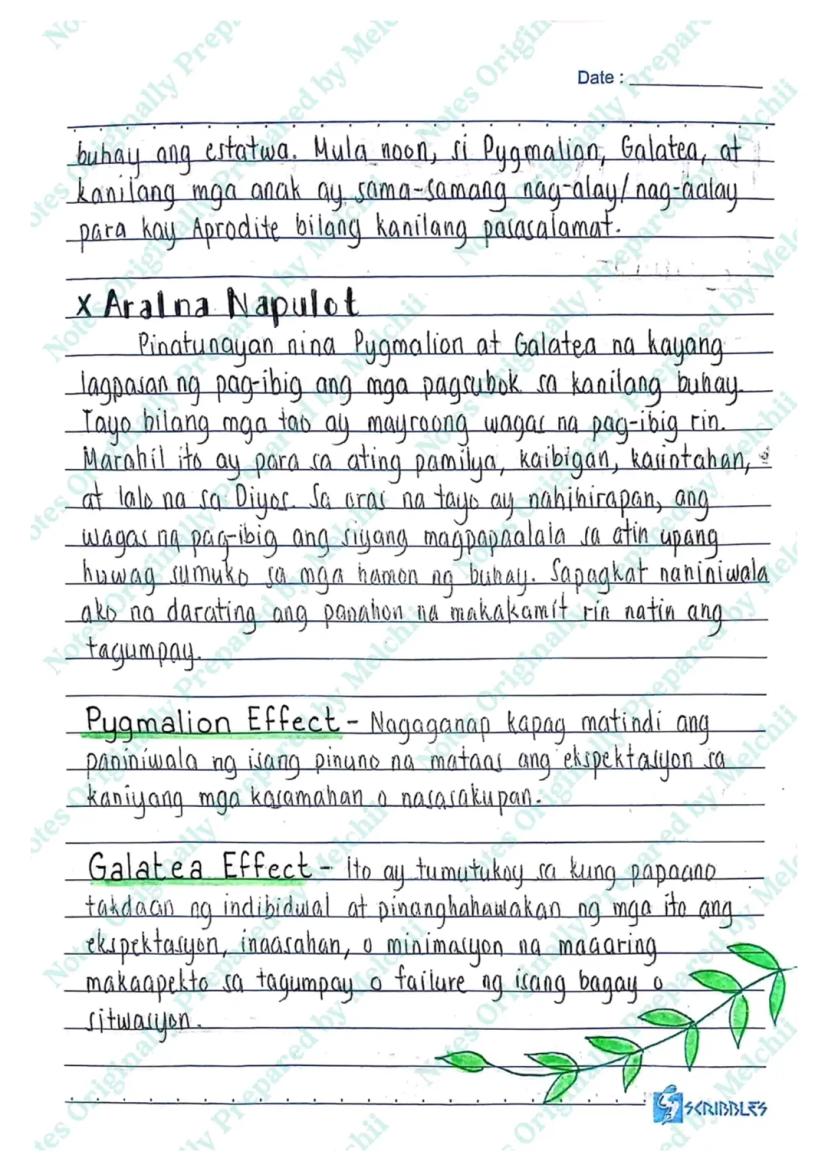 Date :
buhay ang estatwa. Mula noon, si Pygmalion, Galatea, at
kanilang mga anak ay sama-samang nag-alay/nag-aalay
para kay Aprodite bilang kanilang pasasalamat.
x Aral na Napulot
Pinatunayan nina Pygmalion at Galatea na kayang
lagpasan ng pag-ibig ang mga pagsubok sa kanilang buhay.
Tayo bilang mga tao ay mayroong wagas na pag-ibig rin.
Marahil ito ay para sa ating pamilya, kaibigan, kasintahan,
at lalo na sa Diyos. Sa oras na tayo ay nahihirapan, ang
wagas na pag-ibig ang siyang magpapaalala sa atin upang
huwag sumuko sa mga hamon ng buhay. Sapagkat naniniwala
ako na darating ang panahon na makakamit rin natin ang
tagumpay.
Pygmalion Effect - Nagaganap kapag matindi ang
paniniwala ng isang pinuno na mataas ang ekspektasyon sa
kaniyang mga kasamahan o nasasakupan.
Galatea Effect - Ito ay tumutukoy sa kung papaano
takdaan ng indibidwal at pinanghahawakan ng mga ito ang
ekspektasyon, inaasahan, o minimasyon na maaaring
makaapekto sa tagumpay o failure ng isang bagay o
sitwasyon.
SCRIBBLES
Notes Originally Prepared by Melchii